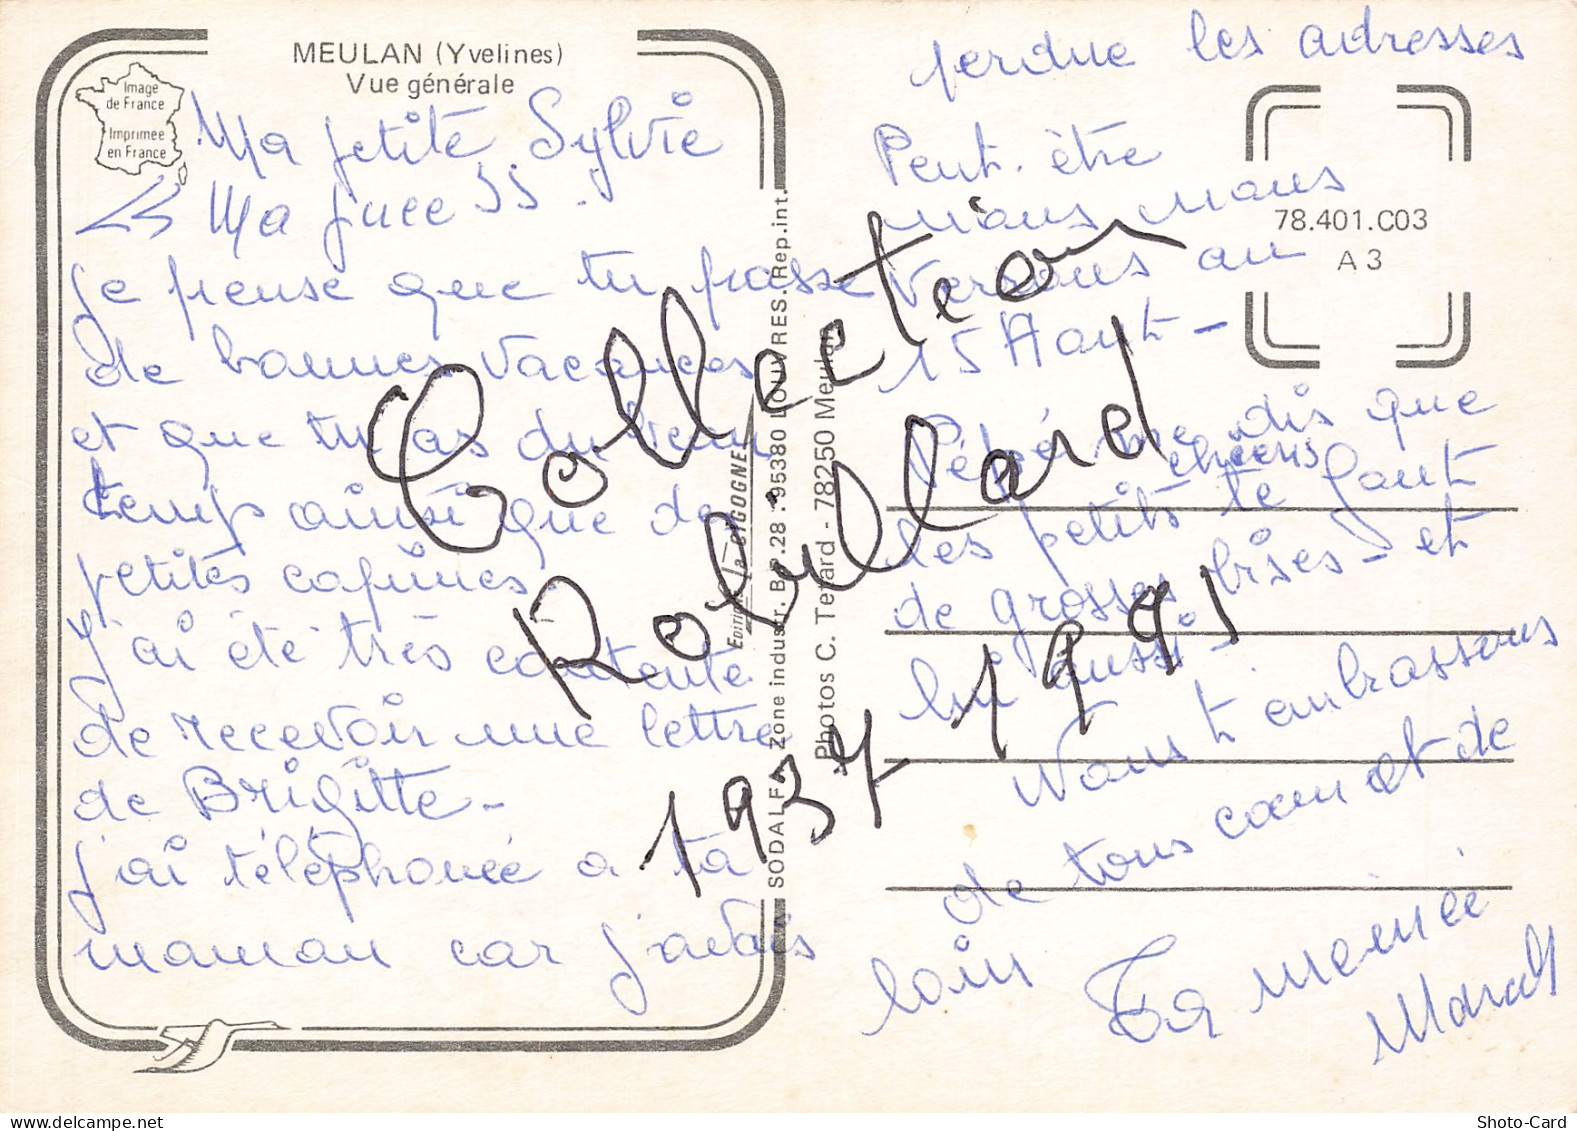 MEULAN (Yvelines)
Vue générale
Image
de France
Imprimée
en France
Ma petite Sylvie
Ma puce
je pense que tu passe
de bonnes vacances
et que tu as du beau
temps ainsi que de
petites copines.
J'ai été très contente
de recevoir une lettre
de Brigitte -
j'ai téléphonée a ta
maman car j'avais
perdue les adresses
Peut-être
nous nous
verrons au
15 Août -
Pépé me dis que
chiens
les petits te font
de grosses bises - et
lui aussi -
Nous t'embrassons
de tous cœur et de
loin
Ta mémée
Marcelle
78.401.C03
A 3
Editions La CIGOGNE
SODALFA Zone industr. B.P.28 - 95380 LOUVRES. Rep.int.
Photos C. Tetard - 78250 Meulan
Collection
Robillard
1937 1991
Shoto-Card